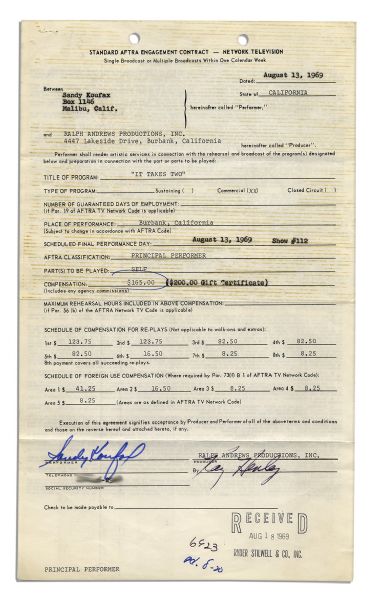 STANDARD AFTRA ENGAGEMENT CONTRACT — NETWORK TELEVISION
Single Broadcast or Multiple Broadcasts Within One Calendar Week
Dated: August 13, 1969
Between
Sandy Koufax
Box 1146
Malibu, Calif.
State of CALIFORNIA
hereinafter called "Performer,"
and RALPH ANDREWS PRODUCTIONS, INC.
4447 Lakeside Drive, Burbank, California
hereinafter called "Producer".
Performer shall render artistic services in connection with the rehearsal and broadcast of the program(s) designated
below and preparation in connection with the part or parts to be played:
TITLE OF PROGRAM: "IT TAKES TWO"
TYPE OF PROGRAM: Sustaining ( ) Commercial (xx) Closed Circuit ( )
NUMBER OF GUARANTEED DAYS OF EMPLOYMENT:
(if Par. 19 of AFTRA TV Code is applicable)
PLACE OF PERFORMANCE: Burbank, California
(Subject to change in accordance with AFTRA Code)
SCHEDULED FINAL PERFORMANCE DAY: August 13, 1969 Show #112
AFTRA CLASSIFICATION: PRINCIPAL PERFORMER
PART(S) TO BE PLAYED: SELF
COMPENSATION: $165.00 ($200.00 Gift Certificate)
(includes any agency commissions)
MAXIMUM REHEARSAL HOURS INCLUDED IN ABOVE COMPENSATION:
(if Par. 56 (b) of the AFTRA Network TV Code is applicable)
SCHEDULE OF COMPENSATION FOR RE-PLAYS (Not applicable to walk-ons and extras):
1st $ 123.75 2nd $ 123.75 3rd $ 82.50 4th $ 82.50
5th $ 82.50 6th $ 16.50 7th $ 8.25 8th $ 8.25
8th payment covers all succeeding re-plays.
SCHEDULE OF FOREIGN USE COMPENSATION (Where required by Par. 73(I) B 1 of AFTRA TV Network Code):
Area 1 $ 41.25 Area 2 $ 16.50 Area 3 $ 8.25 Area 4 $ 8.25
Area 5 $ 8.25 (Areas are as defined in AFTRA TV Network Code)
Execution of this agreement signifies acceptance by Producer and Performer of all of the above terms and conditions
and those on the reverse hereof and attached hereto, if any.
Sandy Koufax
PERFORMER
RALPH ANDREWS PRODUCTIONS, INC.
By Ray Henley
TELEPHONE
SOCIAL SECURITY NUMBER
Check to be made payable to
RECEIVED
AUG 18 1969
RYDER STILWELL & CO., INC.
6923
PRINCIPAL PERFORMER